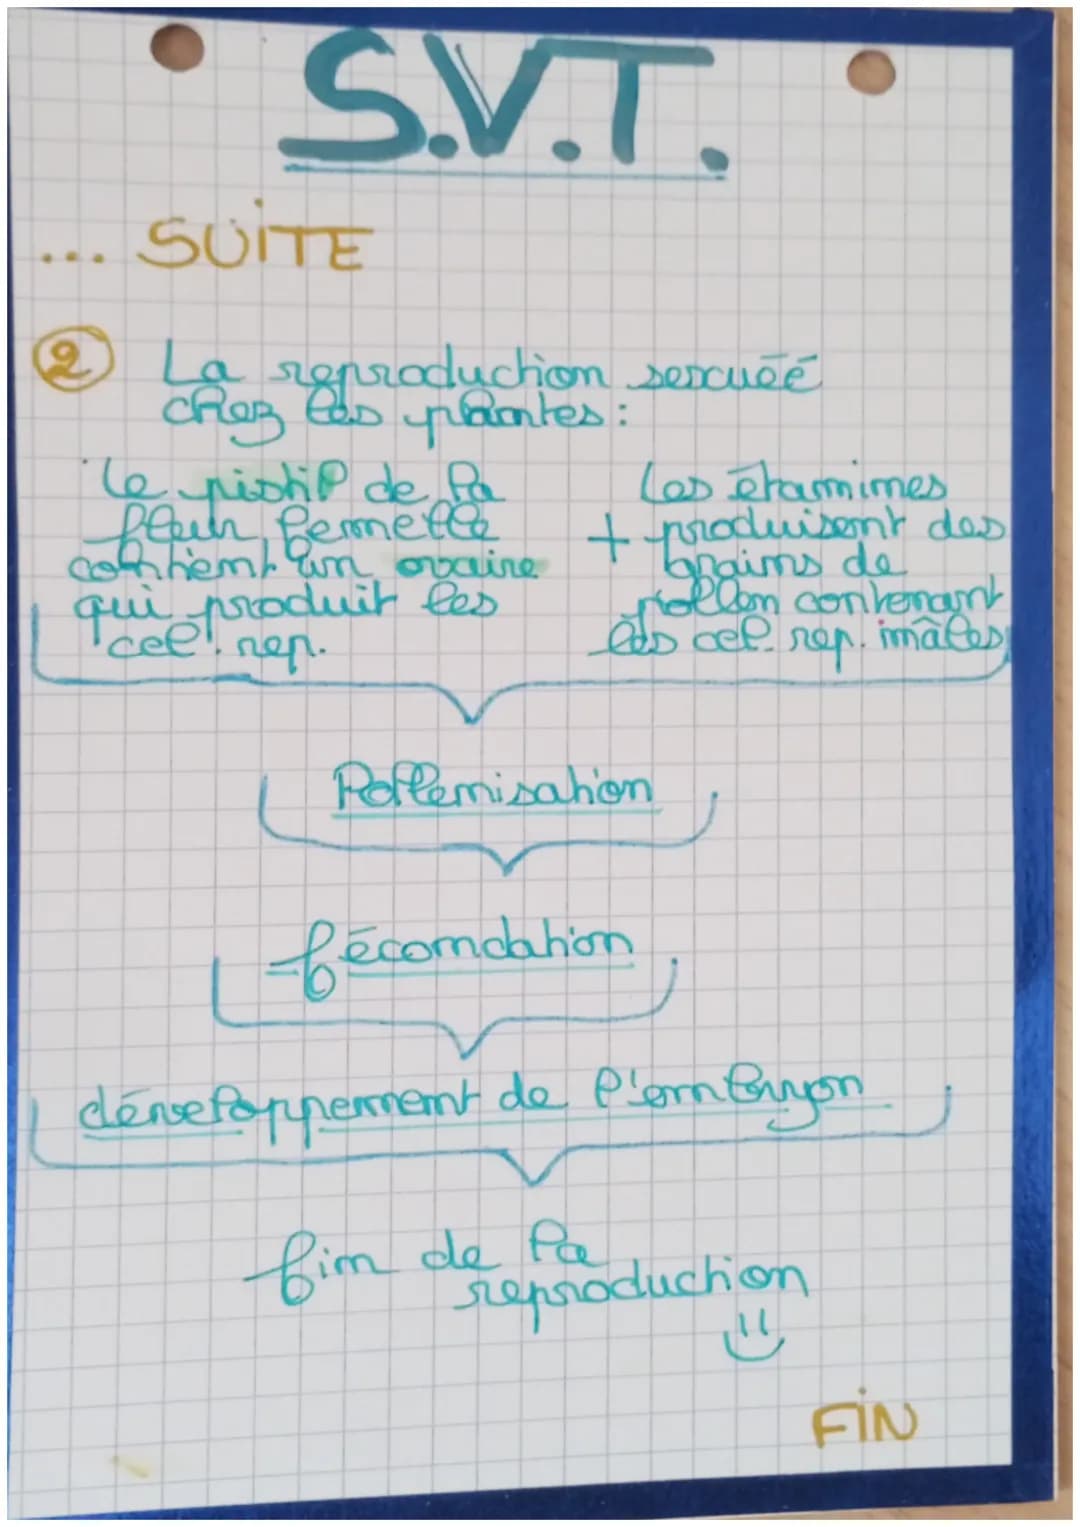 S.V.T.
... SUITE
2 La reproduction sexuéé
chez les plantes :
Le pistil de la
fleur femelle
contient un ovaire
qui produit les
cel. rep.
+
Les étamines
produisent des
grains de
pollen contenant
les cel. rep. mâles
Pollenisation
fécondation
développement de l'embryon
fin de la
reproduction
FIN